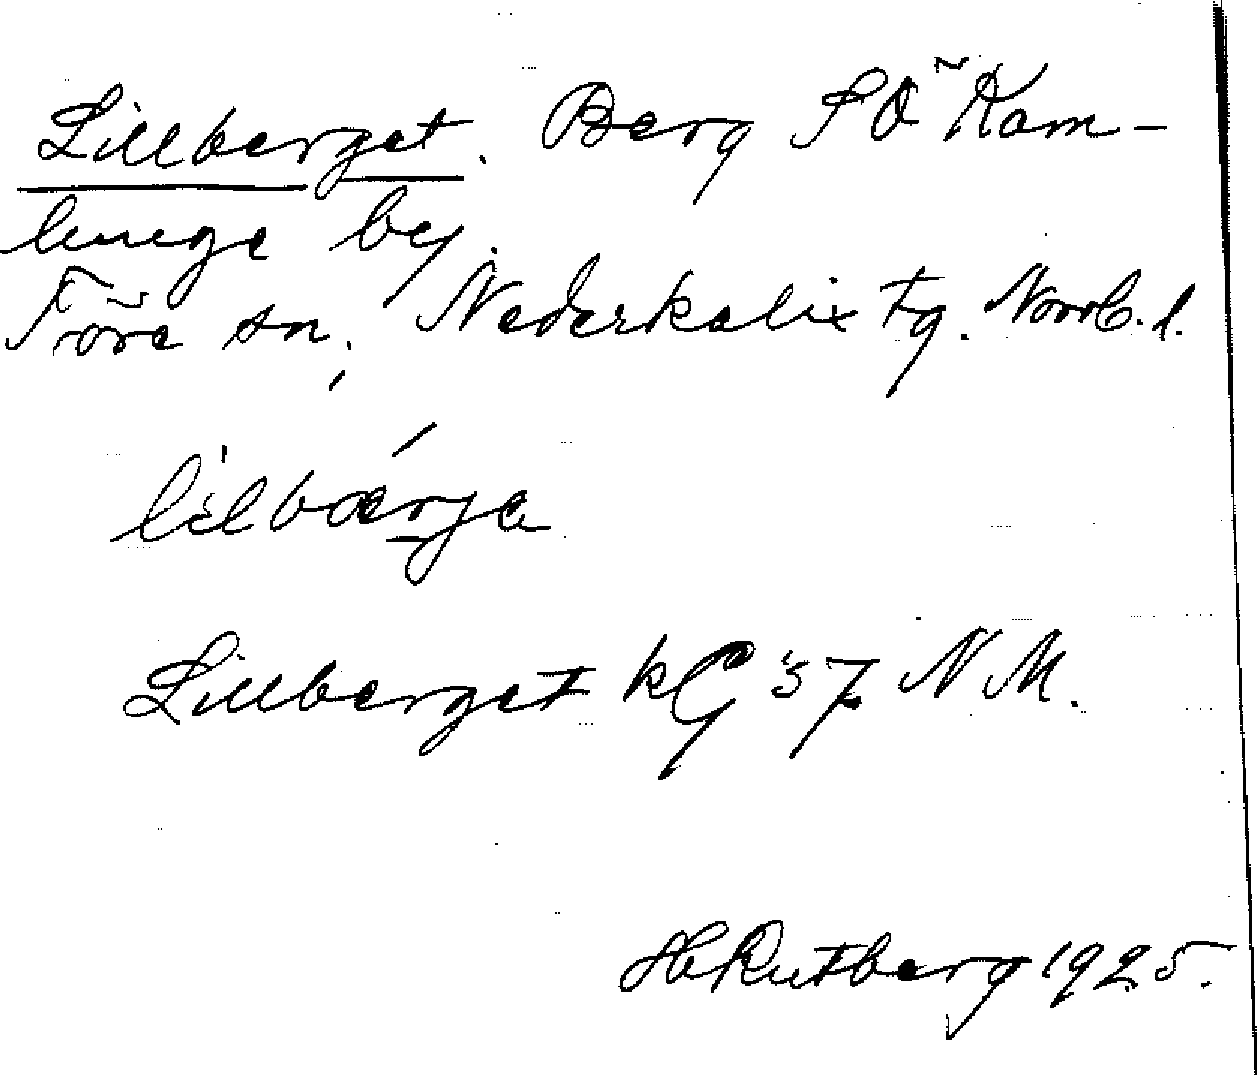 Lillberget. Berg SÖ Kam-
lunge by.
Töre sn, Nederkalix tg. Norrb. l.
lìlbæ̀rje
Lillberget kG 37 NM.
H Rutberg 1925.